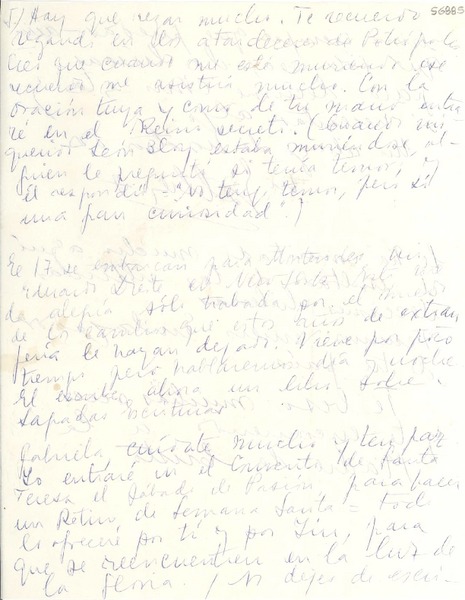 56885
5) Hay que rezar mucho. Te recuerdo
rezando en los atardeceres de Petrópolis
que cuando me esté muriendo ese
recuerdo me asistirá mucho. Con la
oración tuya y como de tu mano entra-
ré en el Reino secreto. (Cuando mi
querido León Bloy estaba muriéndose, al-
guien le preguntó si tenía temor, y
él respondió: "No tengo temor, pero sí
una gran curiosidad".)
El 17 se
Eduardo en
da alegría sólo trabada por el miedo
de los cambios que estos años de extran-
jería le hayan dejado. Viene por poco
tiempo pero hablaremos día y noche
El escribe ahora un libro sobre
Sagradas Escrituras.
Gabriela cuídate mucho y ten paz.
Yo entraré en el Convento de Santa
Teresa el Sábado de Pasión para hacer
un Retiro de Semana Santa = todo
lo ofreceré por ti y por Yin, para
que se reencuentren en la luz de
la Gloria. / No dejes de escri-